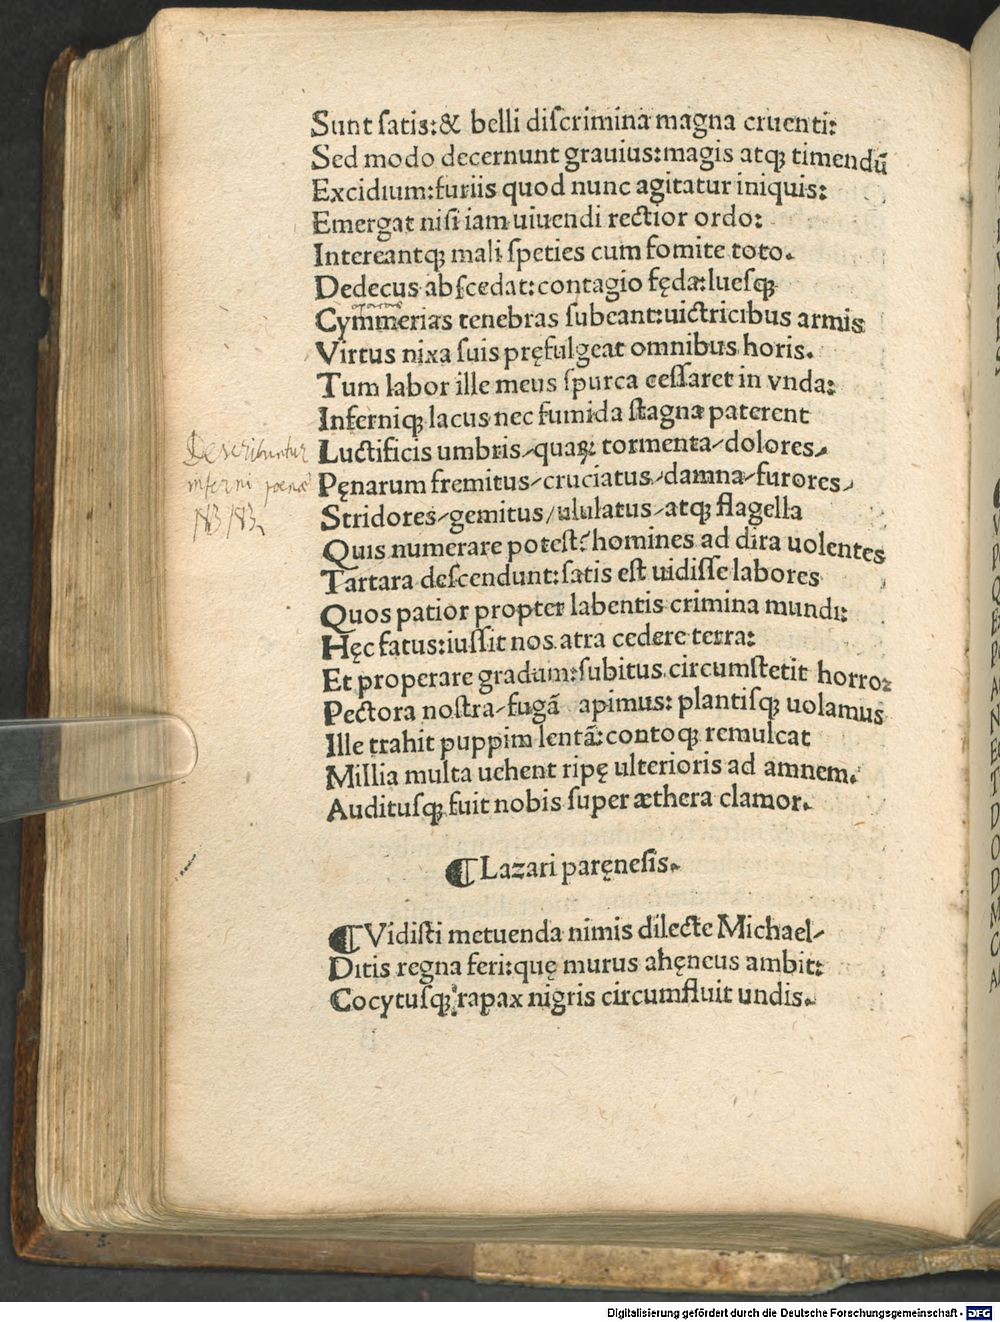 Sunt ſatis:& belli diſcrimina magna cruenti:
Sed modo decernunt grauius:magis atqꝫ timendū
Excidium:furiis quod nunc agitatur iniquis:
Emergat niſi iam uiuendi rectior ordo:
Intereantqꝫ mali ſpeties cum fomite toto.
Dedecus abſcedat:contagio fęda:lueſqꝫ
Cymmerias tenebras ſubeant:uictricibus armis
Virtus nixa ſuis pręfulgeat omnibus horis.
Tum labor ille meus ſpurca ceſſaret in vnda:
Inferniqꝫ lacus nec fumida ſtagna paterent
Describuntur
Luctificis umbris/quaꝝ tormenta/dolores/
inferni poenae
Pęnarum fremitus/cruciatus/damna/furores/
Stridores/gemitus/ululatus/atqꝫ flagella
Quis numerare poteſt?homines ad dira uolentes
Tartara deſcendunt:ſatis eſt uidiſſe labores
Quos patior propter labentis crimina mundi:
Hęc fatus:iuſſit nos atra cedere terra:
Et properare gradum:ſubitus circumſtetit horror
Pectora noſtra/fugā apimus: plantiſqꝫ uolamus
Ille trahit puppim lentā:contoqꝫ remulcat
Millia multa uehent ripę ulterioris ad amnem.
Audituſqꝫ fuit nobis ſuper æthera clamor.
¶Lazari paręneſis.
¶Vidiſti metuenda nimis dilecte Michael/
Ditis regna feri:quę murus ahęneus ambit:
Cocytuſqꝫ rapax nigris circumfluit undis.
Digitalisierung gefördert durch die Deutsche Forschungsgemeinschaft - DFG